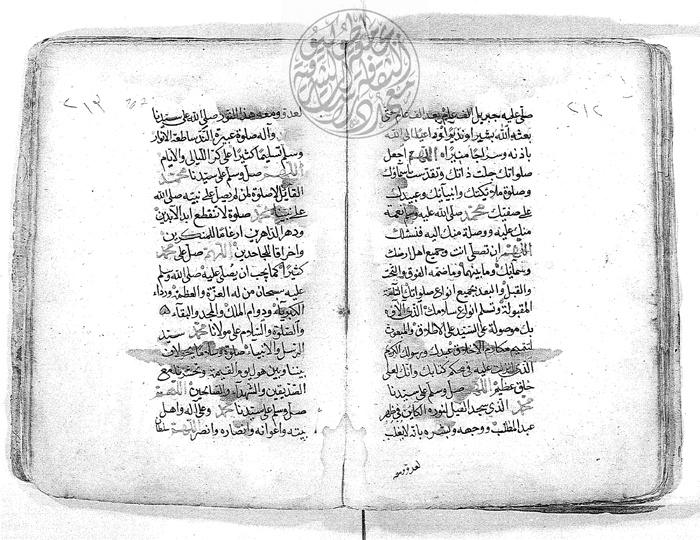 ٢١٢
صلى عليه جبريل الف عام بعد الف عام حتى
بعثه الله بشيرا ونذيرا وداعيا الى الله
باذنه وسراجا منيرا اللهم اجعل
صلواتك جلت ذاتك وتقدست اسماؤك
وصلوة ملائكتك وانبيائك وعبيدك
على صفيك محمد صلى الله عليه وسلم نعمه
منك عليه ووصلة منك اليه فنسئلك
اللهم ان تصلى انت وجميع اهل ارضك
وسمائك وما بينهما وما ضمه الفوق والتحت
والقبل والبعد بجميع انواع صلواتك
المقبولة وتسلم انواع سلامك الذى
بك موصولة على السيد على الاطلاق والمبعوث
لتتميم مكارم الاخلاق عبدك ورسولك الكريم
الذى عليه فى محكم كتابك وانك لعلى
خلق عظيم اللهم صل وسلم على سيدنا
محمد الذى سجد الفيل لنوره الكائن فى ظهر
عبد المطلب ووجهه وبشره بانه لا يغلب
لعدو ومعه
٢١٣
لعدو ومعه هذا النور صلى الله على سيدنا
واله صلوة عبيرة الند ساطعة الانوار
وسلم تسليما كثيرا على كر الليالى والايام
اللهم صل وسلم على سيدنا محمد
القايل لا صلوة لمن لم يصل على نبيه صلى الله
على نبينا محمد صلوة لا تنقطع ابد الابدين
ودهر الداهرين ارغاما للمنكرين
واحراقا للجاحدين اللهم صل على محمد
كثيرا كما يجب ان يصلى عليه صلى الله وسلم
عليه سبحان من له العزة والعظمة ورداء
الكبرياء ودوام الملك والمجد والبقاء
والصلوة والسلام على مولانا محمد سيد
الرسل والانبياء صلوة وسلاما
بيننا وبين هول يوم القيمة وتحشرنا مع
الصديقين والشهداء والصالحين اللهم
صل وسلم على سيدنا محمد وعلى اله واهل
بيته واعوانه وانصاره وانصر اللهم